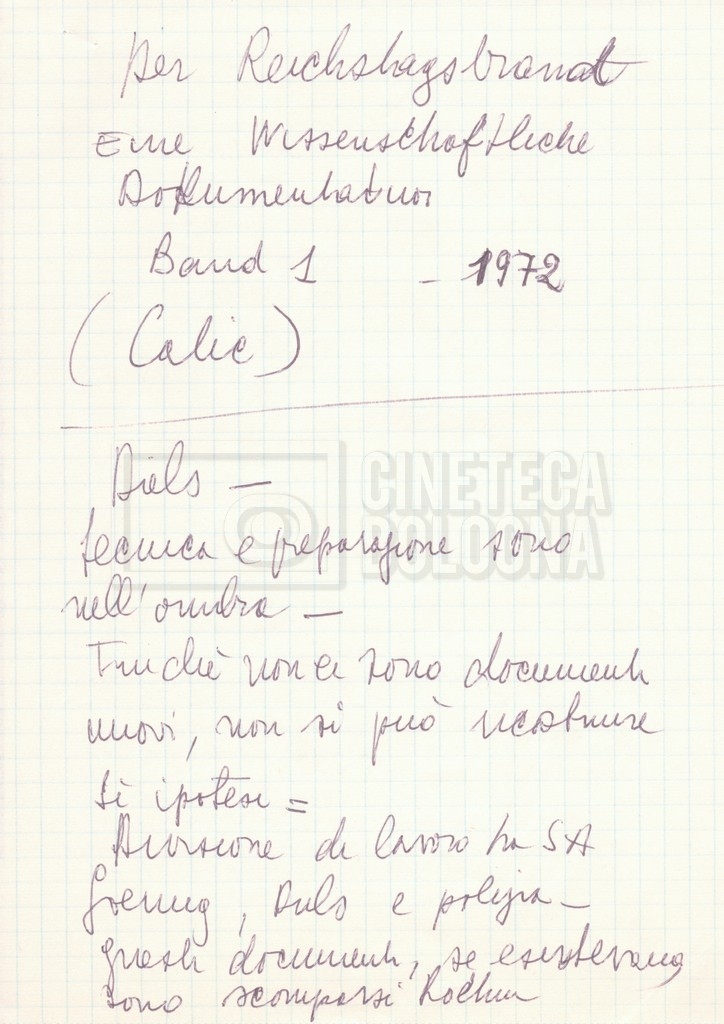 Der Reichstagsbrand
Eine Wissenschaftliche
Dokumentation
Band 1 - 1972
(Calic)
Diels —
tecnica e preparazione sono
nell'ombra —
Finché non ci sono documenti
nuovi, non si può ricostruire
Sì ipotesi =
Divisione di lavoro tra SA
Goering, Diels e polizia —
questi documenti, se esistevano
sono scomparsi
CINETECA
BOLOGNA